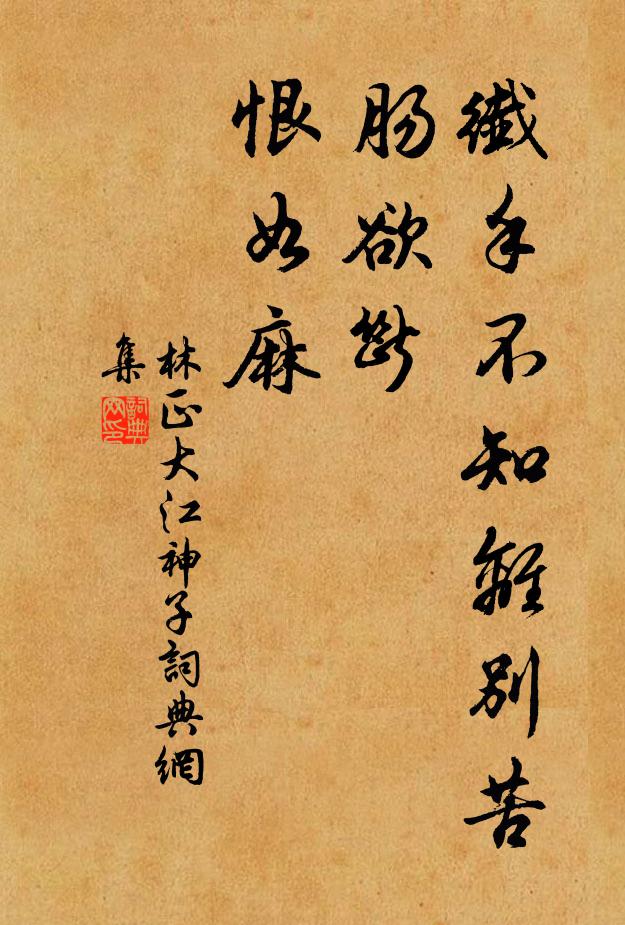 纖手不知離別苦
腸欲斷
恨如麻
林正大江神子詞典網
集
詞典
网印